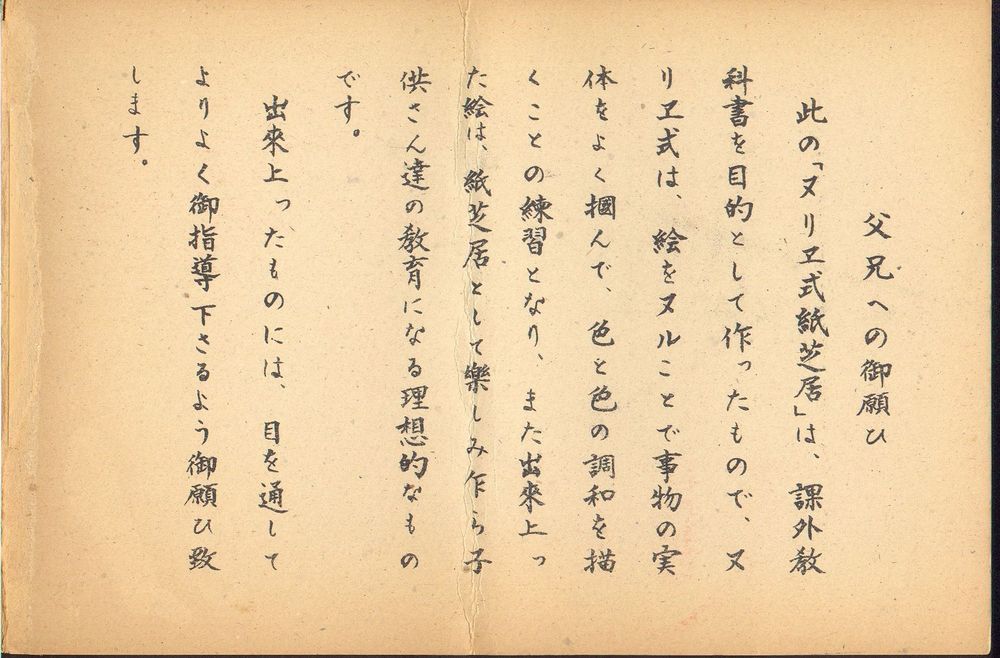 父兄への御願ひ
此の「ヌリヱ式紙芝居」は、課外教
科書を目的として作ったもので、ヌ
リヱ式は、絵をヌルことで事物の実
体をよく摑んで、色と色の調和を描
くことの練習となり、また出來上っ
た絵は、紙芝居として樂しみ乍ら子
供さん達の教育になる理想的なもの
です。
出來上ったものには、目を通して
よりよく御指導下さるよう御願ひ致
します。